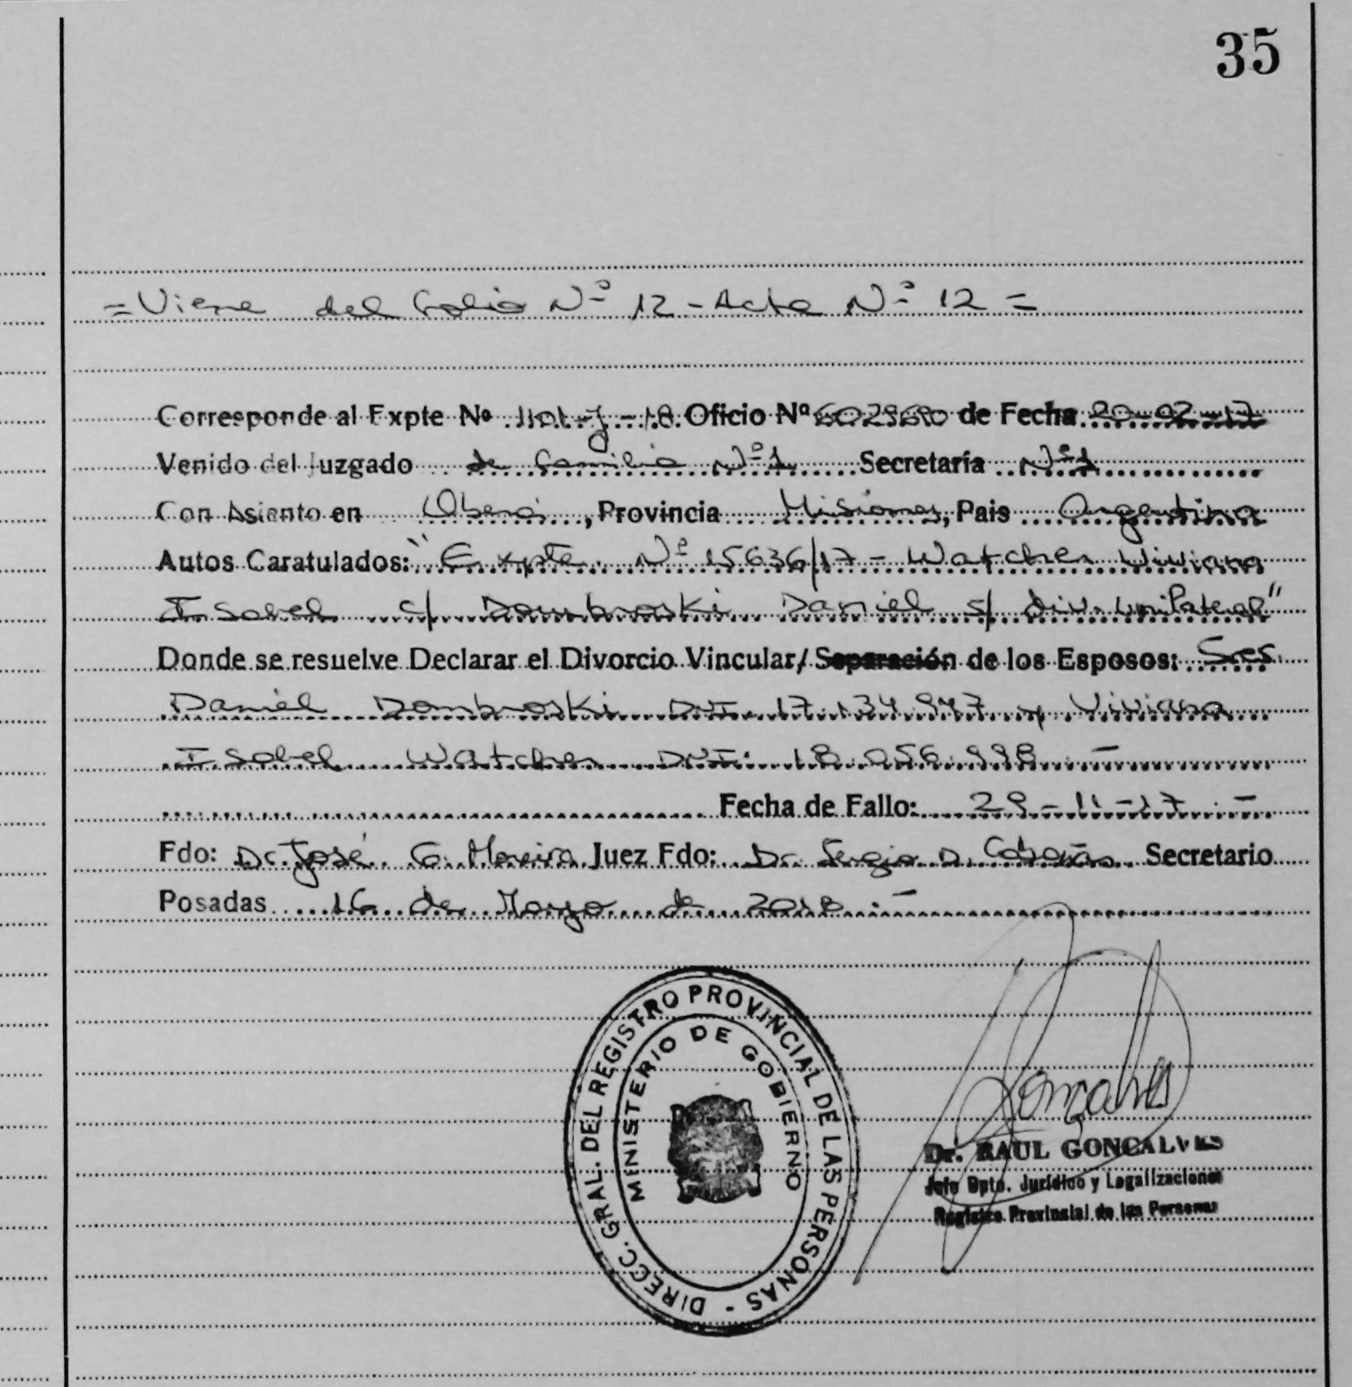 35
= Viene del Folio Nº 12 - Acta Nº 12 =
Corresponde al Expte Nº 1101-J-18 Oficio Nº 602960 de Fecha 20-02-17
Venido del Juzgado de Familia Nº 1 Secretaría Nº 1
Con Asiento en Oberá, Provincia Misiones, Pais Argentina
Autos Caratulados: "Expte. Nº 15636/17 - Watcher Viviana
Isabel c/ Dombroski Daniel s/ div. unilateral"
Donde se resuelve Declarar el Divorcio Vincular/ Separación de los Esposos: Sres.
Daniel Dombroski DNI. 17.134.947 y Viviana
Isabel Watcher DNI: 18.056.998.-
Fecha de Fallo: 29-11-17.-
Fdo: Dr. José G. Moreira Juez Fdo: Dr. Sergio D. Secretario
Posadas 16 de Mayo de 2018.-
DIRECC. GRAL. DEL REGISTRO PROVINCIAL DE LAS PERSONAS -
MINISTERIO DE GOBIERNO
Dr. RAUL GONCALVES
Jefe Dpto. Jurídico y Legalizaciones
Registro Provincial de las Personas